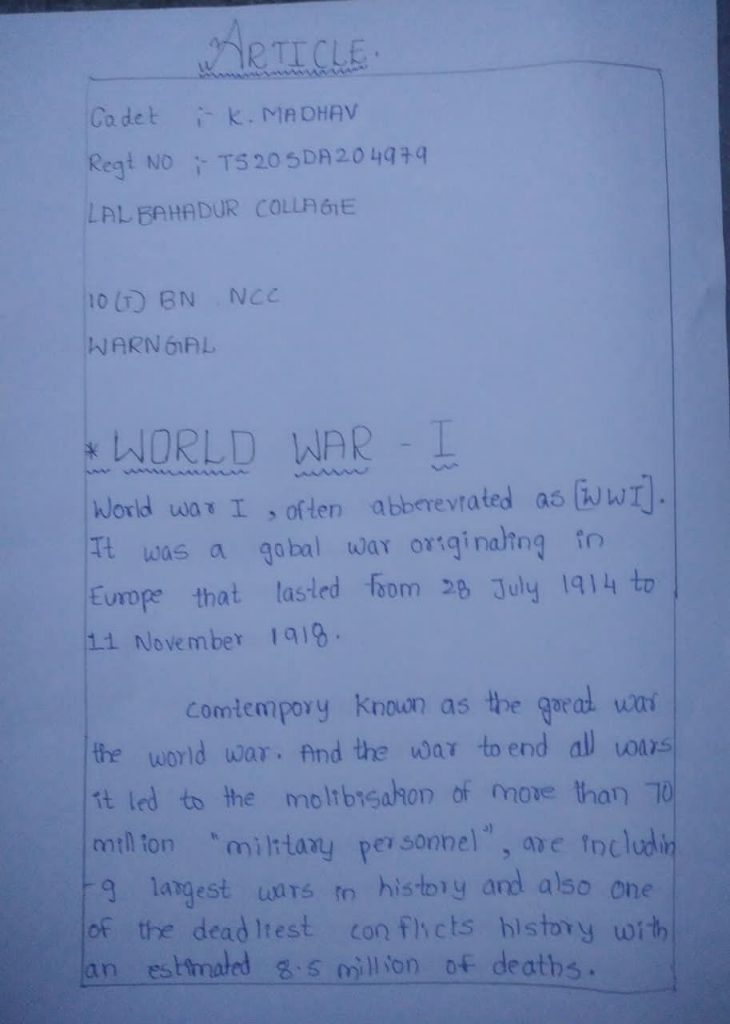 ARTICLE.
Cadet :- K. MADHAV
Regt NO :- TS20SDA204979
LAL BAHADUR COLLAGE
10(T) BN NCC
WARNGAL
* WORLD WAR - I
World war I , often abbereviated as [WWI].
It was a gobal war originating in
Europe that lasted from 28 July 1914 to
11 November 1918.
comtempory known as the great war
the world war. And the war to end all wars
it led to the molibisation of more than 70
million "military personnel", are includin
-g largest wars in history and also one
of the deadliest conflicts history with
an estimated 8.5 million of deaths.